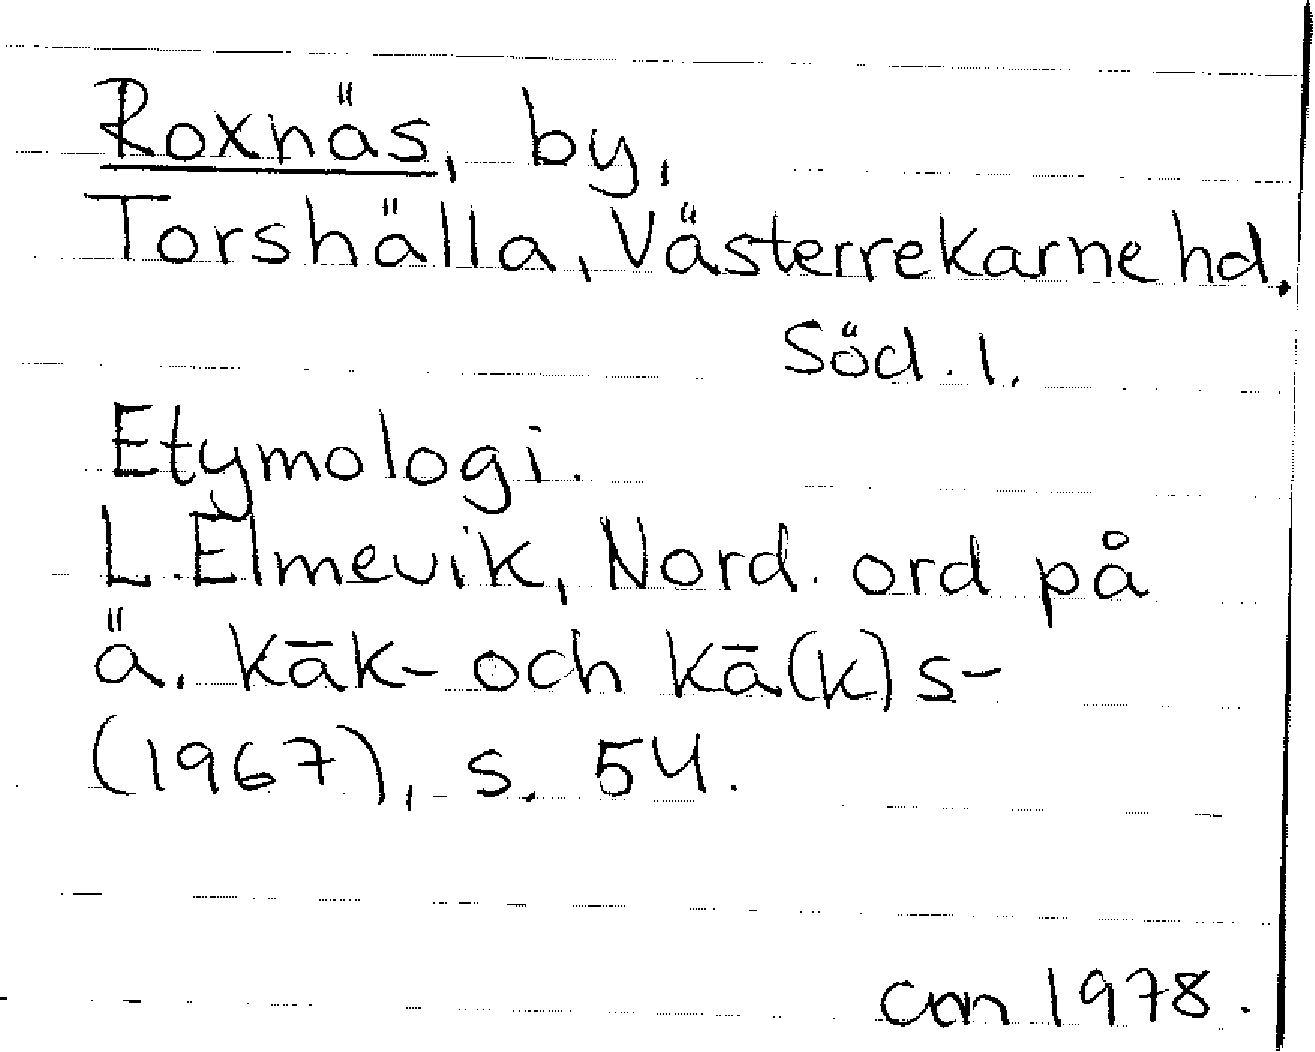 Roxnäs, by,
Torshälla, Västerrekarne hd.
Söd. l.
Etymologi.
L. Elmevik, Nord. ord på
ä. kāk- och kā(k)s-
(1967), s. 54.
1978.